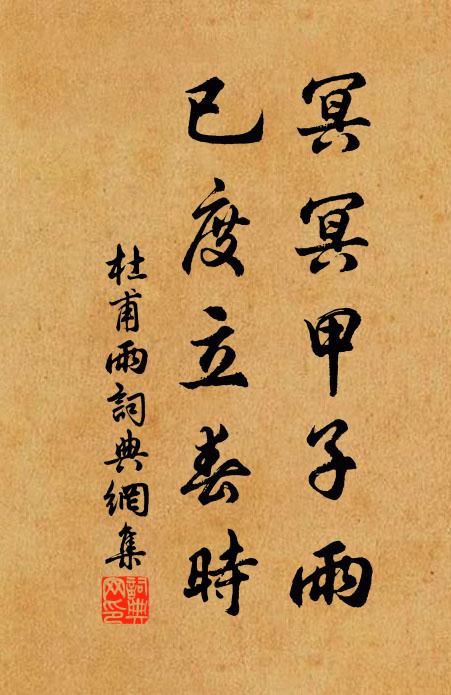 冥冥甲子雨
已度立春時
杜甫雨詞典網集
詞典網印